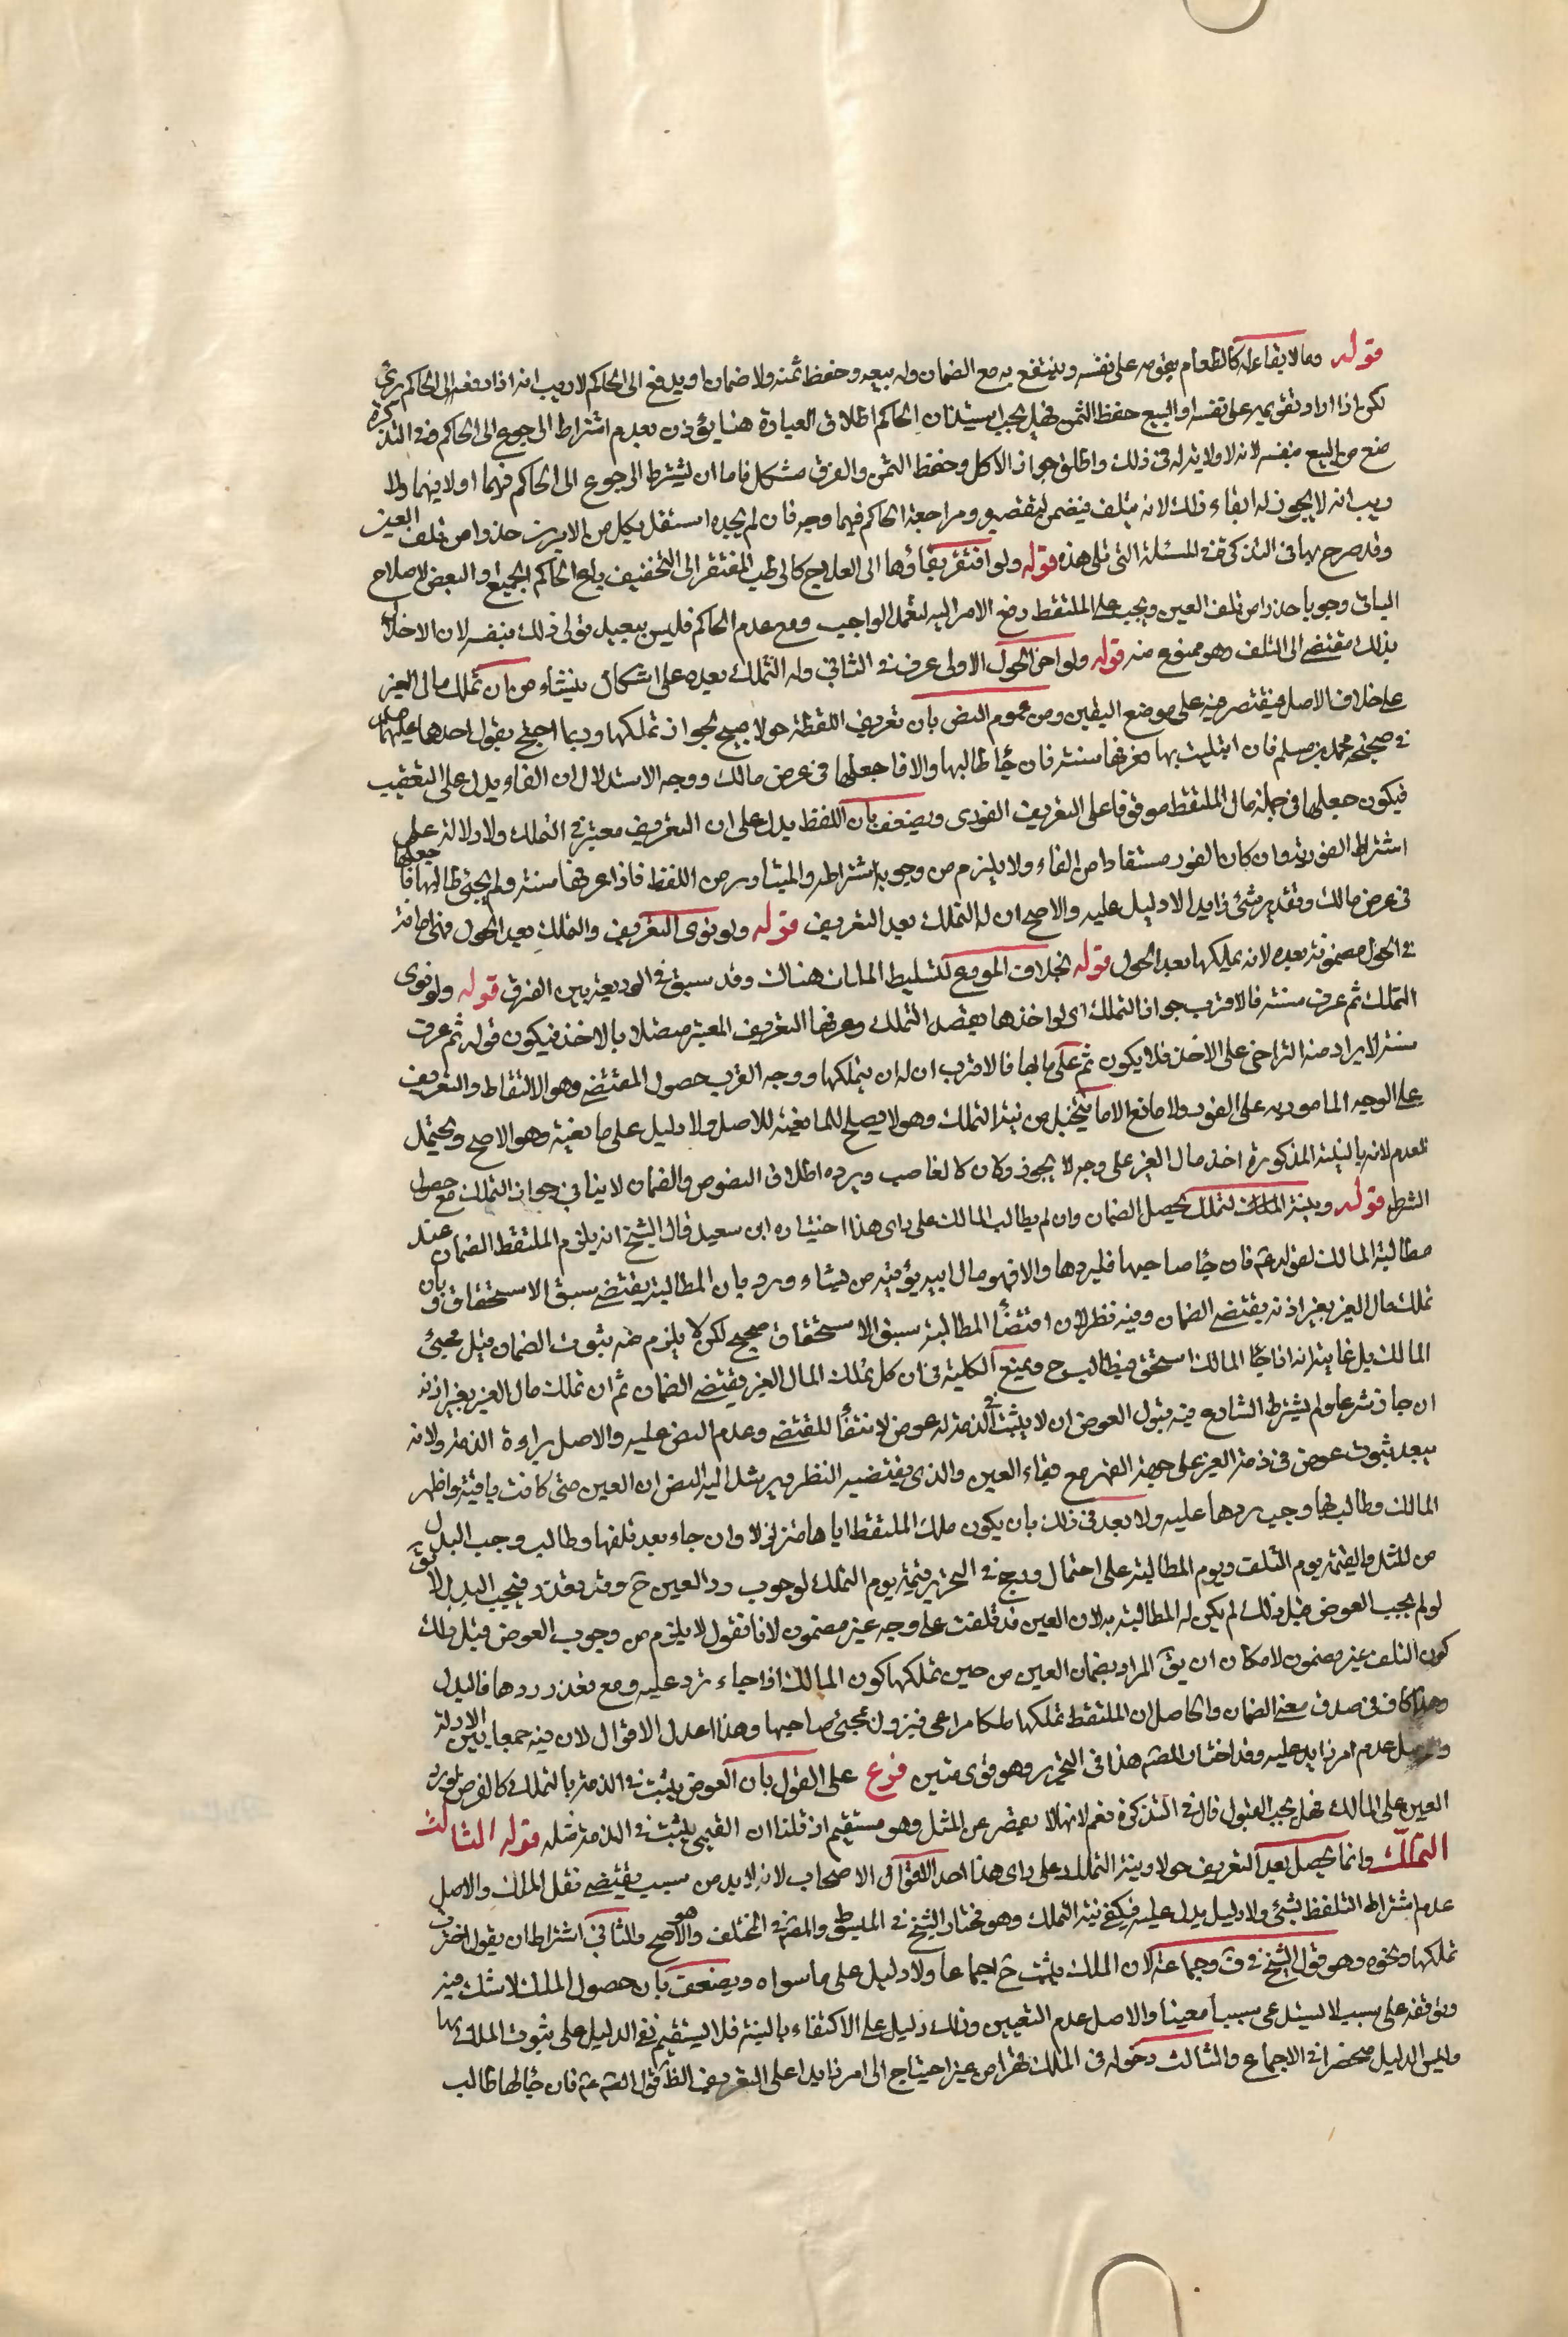 قوله وما لا بقاء له كالطعام يقومه على نفسه وينتفع به مع الضمان وله بيعه وحفظ ثمنه ولا ضمان او يدفع الى الحاكم لا ريب انه اذا دفعه الى الحاكم برئ
لكن اذا اراد تقويمه على نفسه او البيع حفظ الثمن فهل يجب استيذان الحاكم اطلاق العبارة هنا يؤذن بعدم اشتراط الرجوع الى الحاكم وفي التذكرة
منع من البيع بنفسه لانه لا ولاية له في ذلك واطلق جواز الاكل وحفظ الثمن والفرق مشكل فاما ان يشترط الرجوع الى الحاكم فيهما او لا فيهما ولا
ريب انه لا يجوز له ابقاء ذلك لانه يتلف فيضمن لتقصيره ومراجعة الحاكم فيهما وجه فان لم يجده استقل بكل من الامرين حذرا من تلف العين
وقد صرح بها في التذكرة في المسئلة التي تلي هذه قوله ولو افتقر بقاؤها الى العلاج كالرطب المفتقر الى التجفيف باع الحاكم الجميع او البعض لاصلاح
الباقي وجوبا حذرا من تلف العين ويجب على الملتقط رفع الامر اليه لتعمل الواجب ومع عدم الحاكم فليس ببعيد تولى ذلك بنفسه لان الاخلال
بذلك مقتضے الى التلف وهو ممنوع منه قوله ولو اخر الحول الاول عرف في الثاني وله التملك بعده على اشكال ينشاء من ان تملك مال الغير
على خلاف الاصل فيقتصر فيه على موضع اليقين ومن عموم النص بان تعريف اللقطة حولا يبيح جواز تملكها وربما احتج بقول احدهما عليهما السلم
في صحيحة محمد بن مسلم فان ابتليت بها فعرفها سنة فان جاء طالبها والا فاجعلها في عرض مالك ووجه الاستدلال ان الفاء يدل على التعقيب
فيكون جعلها في جملة مال الملتقط موقوفا على التعريف الفورى ويضعف بان اللفظ يدل على ان التعريف معتبر في التملك ولا دلالة على
اشتراط الفورية وان كان الفور مستفادا من الفاء ولا يلزم من وجوبه اشتراطه والمتبادر من اللفظ فاذا عرفتها سنة ولم يجئ طالبها فاجعلها
في عرض مالك وتقدير شئ زايد لا دليل عليه والاصح ان له التملك بعد التعريف قوله ولو نوى التعريف والتملك بعد الحول فهى امانة
في الحول مضمونة بعده لانه يملكها بعد الحول قوله بخلاف المودع لتسليط المالك هناك وقد سبق في الوديعة بيان الفرق قوله ولو نوى
التملك ثم عرف سنة فالاقرب جواز التملك اى لو اخذها بقصد التملك وعرفها التعريف المعتبر متصلا بالاخذ فيكون قوله ثم عرف
سنة لا يراد منه التراخى على الاخذ فلا يكون ثم على مالها فالاقرب ان له ان يتملكها ووجه القرب حصول المقتضے وهو الالتقاط والتعريف
على الوجه المامور به على الفور ولا مانع الا ما يتخيل من نية التملك وهو لا يصلح للمانعية للاصل ولا دليل على مانعيته وهو الاصح ويحتمل
العدم لانه بالنية المذكورة اخذ مال الغير على وجه لا يجوز وكان كالغاصب ويرده اطلاق النصوص والضمان لا ينافي جواز التملك مع حصول
الشرط قوله وبنية التملك يحصل الضمان وان لم يطالب المالك على راى هذا اختياره ابن سعيد قال الشيخ انه يلزم الملتقط الضمان عند
مطالبة المالك لقوله ع فان جاء صاحبها فليردها والا فهو مال الله يؤتيه من يشاء ورد بان المطالبة يقتضے سبق الاستحقاق وبان
تملك مال الغير بغير اذنه يقتضے الضمان وفيه نظر لان اقتضاء المطالبة سبق الاستحقاق صحيح لكن لا يلزم منه ثبوت الضمان قبل مجئ
المالك بل غايته انه اذا جاء المالك استحق فيطالب ح ويمنع الكلية في ان كل تملك المال الغير يقتضے الضمان ثم ان تملك مال الغير بغير اذنه
ان جاز شرعا ولم يشترط الشارع فيه قبول العوض ان لا يثبت في الذمة له عوض لانتفاء المقتضے وعدم النص عليه والاصل براءة الذمة ولانه
يبعد ثبوت عوض في ذمة الغير على جهة القهر مع بقاء العين والذى يقتضيه النظر ويرشد اليه النص ان العين متى كانت باقية وظهر
المالك وطالب بها وجب ردها عليه ولا بعد في ذلك بان يكون ملك الملتقط اياها متزلزلا وان جاء بعد تلفها وطالب وجب البدل
من المثل والقيمة يوم التلف ويوم المطالبة على احتمال ورجح في التحرير قيمة يوم التملك لوجوب رد العين ح وقد تعذر فيجب البدل لا يق
لو لم يجب العوض قبل ذلك لم يكن له المطالبة به لان العين قد تلفت على وجه غير مضمون لانا نقول لا يلزم من وجوب العوض قبل ذلك
كون التلف غير مضمون لامكان ان يق المراد بضمان العين من حين تملكها كون المالك اذا جاء ترد عليه ومع تعذر ردها فالبدل
وهذا كاف في صدق معنى الضمان والحاصل ان الملتقط تملكها ملكا مراعى فيزول بمجئ صاحبها وهذا اعدل الاقوال لان فيه جمعا بين الادلة
والاصل عدم امر زايد عليه وقد اختار المصم هذا في التحرير وهو قوى متين فرع على القول بان العوض يثبت في الذمة بالتملك كالقرض لو رد
العين على المالك فهل يجب القبول قال في التذكرة نعم لانها لا يقصر عن المثل وهو مستقيم ان قلنا ان القيمي يثبت في الذمة مثله قوله الثالث
التملك وانما يحصل بعد التعريف حولا ونية التملك على راى هذا احد الاقوال الاصحاب لانه لا بد من سبب يقتضے نقل الملك والاصل
عدم اشتراط التلفظ بشئ ولا دليل يدل عليه فيكفي نية التملك وهو مختار الشيخ في المبسوط والمصم في المختلف وهو الاصح والثاني اشتراط ان يقول اخترت
تملكها ونحوه وهو قول الشيخ في ف وجماعة لان الملك يثبت ح اجماعا ولا دليل على ما سواه ويضعف بان حصول الملك لا شك فيه
وتوقفه على سبب لا يستدعى سببا معينا والاصل عدم التعيين وذلك دليل على الاكتفاء بالنية فلا يستقيم نفى الدليل على ثبوت الملك بها
وليس الدليل منحصرا في الاجماع والثالث دخوله في الملك قهرا من غير احتياج الى امر زايد على التعريف لظ قول الصم ع فان جاء لها طالب